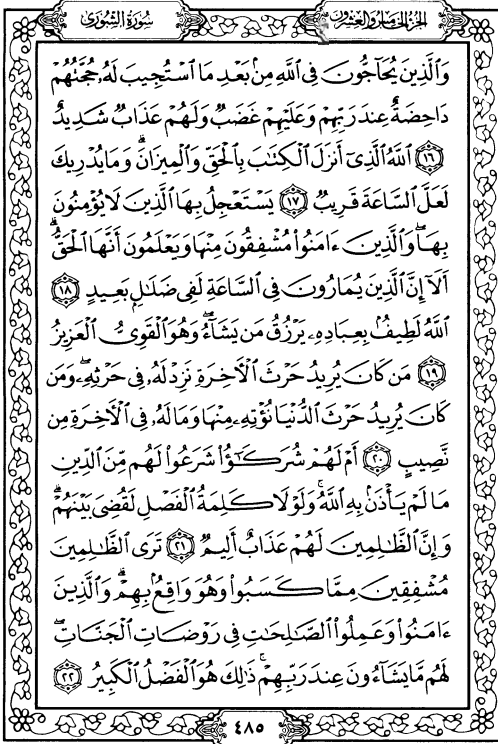 سُورَةُ الشُّورَىٰ
الجُزءُ الخَامِسُ وَالعِشْرُونَ
وَالَّذِينَ يُحَاجُّونَ فِي اللَّهِ مِنۢ بَعْدِ مَا ٱسْتُجِيبَ لَهُۥ حُجَّتُهُمْ
دَاحِضَةٌ عِندَ رَبِّهِمْ وَعَلَيْهِمْ غَضَبٌ وَلَهُمْ عَذَابٌ شَدِيدٌ
١٦ ٱللَّهُ ٱلَّذِىٓ أَنزَلَ ٱلْكِتَٰبَ بِٱلْحَقِّ وَٱلْمِيزَانَۗ وَمَا يُدْرِيكَ
لَعَلَّ ٱلسَّاعَةَ قَرِيبٌ ١٧ يَسْتَعْجِلُ بِهَا ٱلَّذِينَ لَا يُؤْمِنُونَ
بِهَاۖ وَٱلَّذِينَ ءَامَنُوا۟ مُشْفِقُونَ مِنْهَا وَيَعْلَمُونَ أَنَّهَا ٱلْحَقُّۗ
أَلَآ إِنَّ ٱلَّذِينَ يُمَارُونَ فِى ٱلسَّاعَةِ لَفِى ضَلَٰلٍۭ بَعِيدٍ ١٨
ٱللَّهُ لَطِيفٌۢ بِعِبَادِهِۦ يَرْزُقُ مَن يَشَآءُۖ وَهُوَ ٱلْقَوِىُّ ٱلْعَزِيزُ
١٩ مَن كَانَ يُرِيدُ حَرْثَ ٱلْءَاخِرَةِ نَزِدْ لَهُۥ فِى حَرْثِهِۦۖ وَمَن
كَانَ يُرِيدُ حَرْثَ ٱلدُّنْيَا نُؤْتِهِۦ مِنْهَا وَمَا لَهُۥ فِى ٱلْءَاخِرَةِ مِن
نَّصِيبٍ ٢٠ أَمْ لَهُمْ شُرَكَٰٓؤُا۟ شَرَعُوا۟ لَهُم مِّنَ ٱلدِّينِ
مَا لَمْ يَأْذَنۢ بِهِ ٱللَّهُۚ وَلَوْلَا كَلِمَةُ ٱلْفَصْلِ لَقُضِىَ بَيْنَهُمْۗ
وَإِنَّ ٱلظَّٰلِمِينَ لَهُمْ عَذَابٌ أَلِيمٌ ٢١ تَرَى ٱلظَّٰلِمِينَ
مُشْفِقِينَ مِمَّا كَسَبُوا۟ وَهُوَ وَاقِعٌۢ بِهِمْۗ وَٱلَّذِينَ
ءَامَنُوا۟ وَعَمِلُوا۟ ٱلصَّٰلِحَٰتِ فِى رَوْضَاتِ ٱلْجَنَّاتِۖ
لَهُم مَّا يَشَآءُونَ عِندَ رَبِّهِمْۚ ذَٰلِكَ هُوَ ٱلْفَضْلُ ٱلْكَبِيرُ ٢٢
٤٨٥